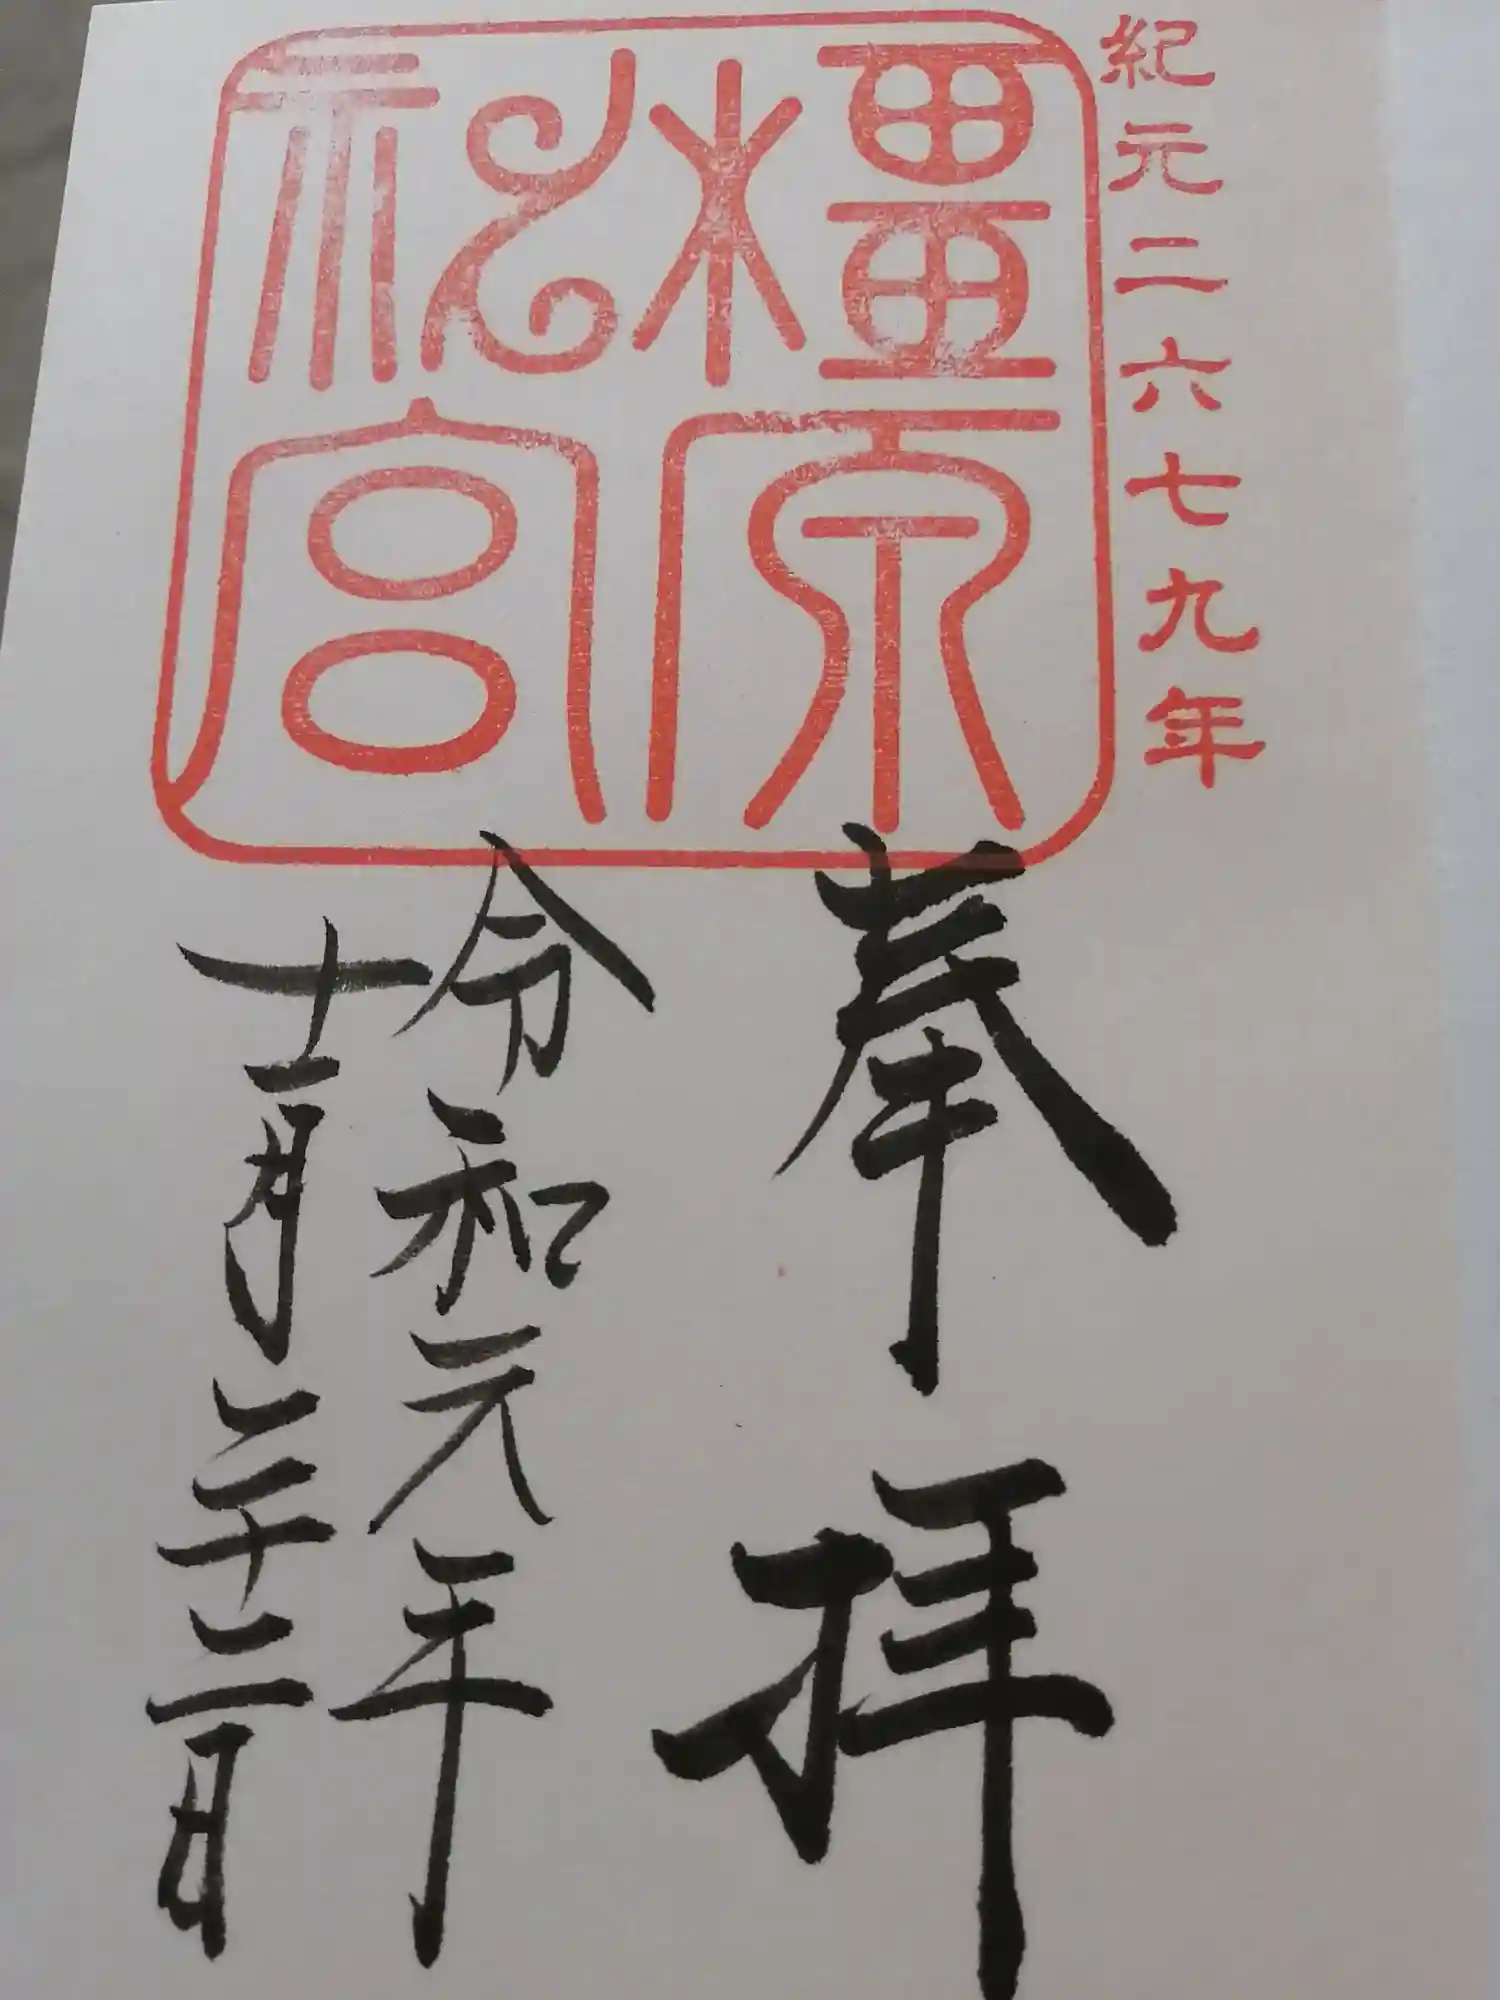 紀元二六七九年
橿原
神宮
奉拝
令和元年
十一月二十二日